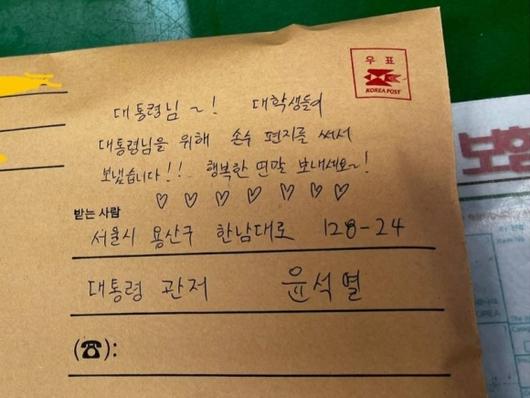 우 표
KOREA POST
대통령님~! 대학생들이
대통령님을 위해 손수 편지를 써서
보냈습니다!! 행복한 연말 보내세요~!
♡ ♡ ♡ ♡ ♡ ♡ ♡
받는 사람
서울시 용산구 한남대로 128-24
대통령 관저 윤석열
(☎):
보험